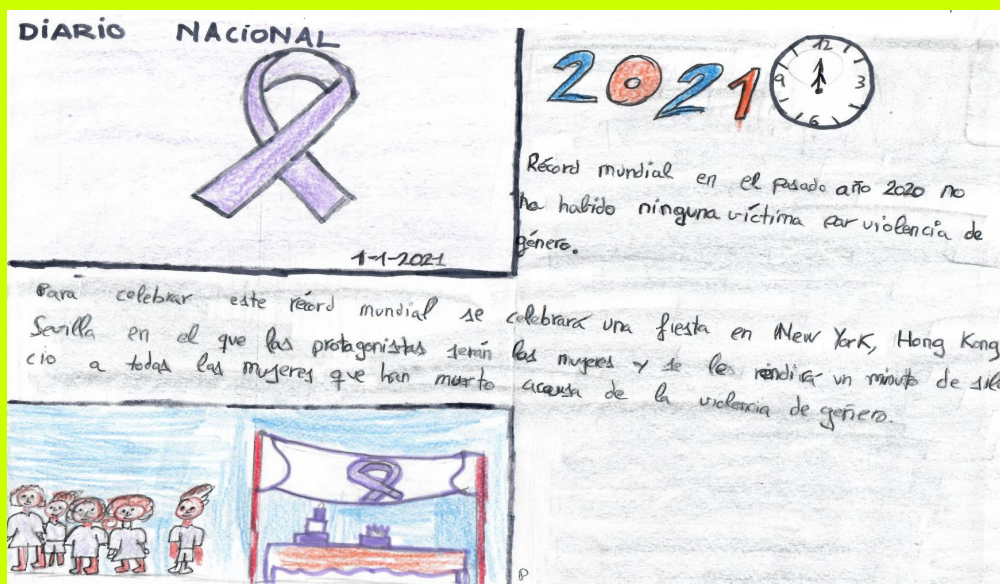 DIARIO NACIONAL
1-1-2021
2021
12
9
3
6
Récord mundial en el pasado año 2020 no
ha habido ninguna víctima por violencia de
género.
Para celebrar este récord mundial se celebrará una fiesta en New York, Hong Kong
Sevilla en el que las protagonistas serán las mujeres y se les rendirá un minuto de sile
cio a todas las mujeres que han muerto acausa de la violencia de género.